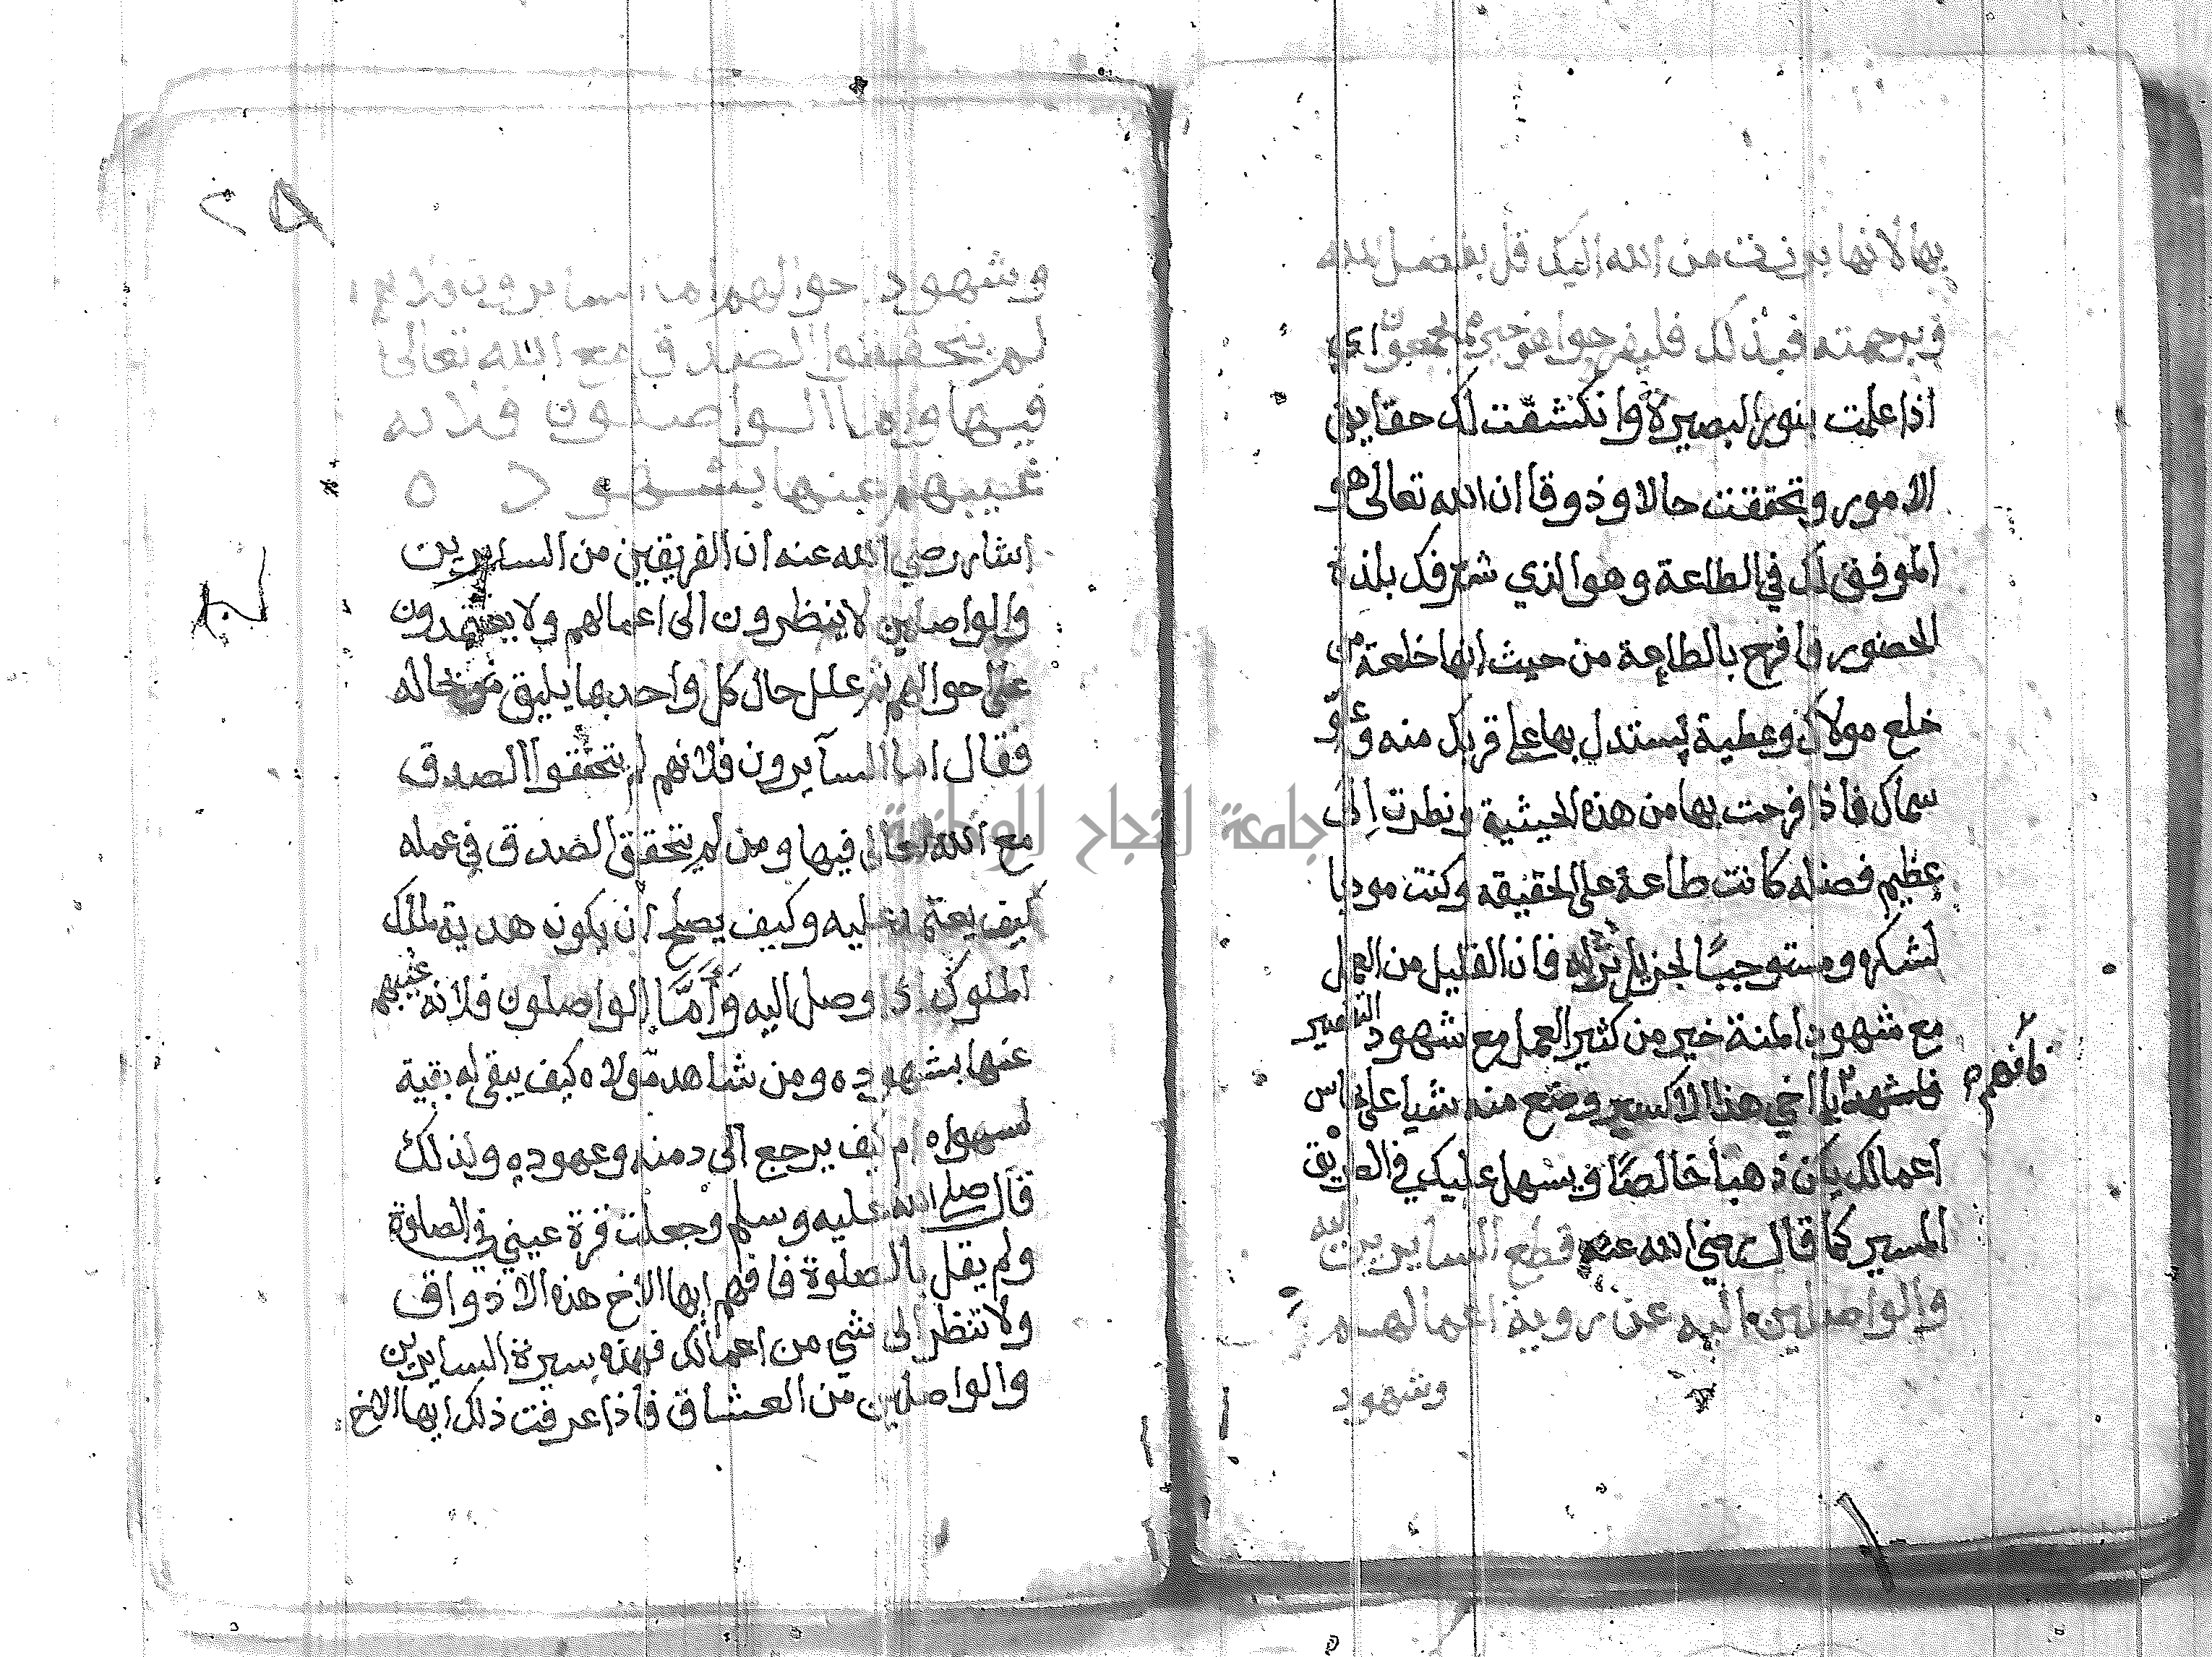 بها لانها برزت من الله اليك قل بفضل الله
وبرحمته فبذلك فليفرحوا هو خير مما يجمعون اي
اذا علمت بنور البصيرة وانكشفت لك حقايق
الامور وتحققت حالا وذوقا ان الله تعالى هو
الموفق لك في الطاعة وهو الذي شرفك بلذة
الحضور فافرح بالطاعة من حيث انها خلعة من
خلع مولاك وعطية يستدل بها على قربك منه
سماك فاذا فرحت بها من هذه الحيثية ونظرت الى
عظيم فضله كانت طاعة على الحقيقه وكنت موديا
لشكره ومستوجبًا لجزيل نواله فان القليل من العمل
مع شهود المنة خير من كثير العمل مع شهود التقصير
فافهم
يا اخي هذا الاكسير وضع منه شيا على نحاس
اعمالك يكن ذهبًا خالصًا ويسهل عليك في الطريق
المسير كما قال رضي الله عنه قطع السايرين اليه
والواصلين اليه عن روية اعمالهم
وشهود
٢٨
وشهود احوالهم اما السايرون فلانهم
لم يتحققوا الصدق مع الله تعالى
فيها واما الواصلون فلانه
غيبهم عنها بشهوده
اشار رضي الله عنه ان الفريقين من السايرين
والواصلين لا ينظرون الى اعمالهم ولا يعتمدون
على احوالهم ثم علل حال كل واحد بما يليق
فقال اما السآيرون فلانهم لم يتحققوا الصدق
مع الله تعالى فيها ومن لم يتحقق الصدق في عمله
كيف يعتمد عليه وكيف يصلح ان يكون هدية لملك
الملوك اذا وصل اليه وَأَمَّا الواصلون فلانه غيبهم
عنها بشهوده ومن شاهد مولاه كيف يبقى له بقية
لسواه ام كيف يرجع الى دمنه وعهوده ولذلك
قال صلى الله عليه وسلم وجعلت قرة عيني في الصلوة
ولم يقل بالصلوة فافهم ايها الاخ هذه الاذواق
ولا تنظر الى شي من اعمالك فهذه سيرة السايرين
والواصلين من العشاق فاذا عرفت ذلك ايها الاخ
جامعة النجاح الوطنية